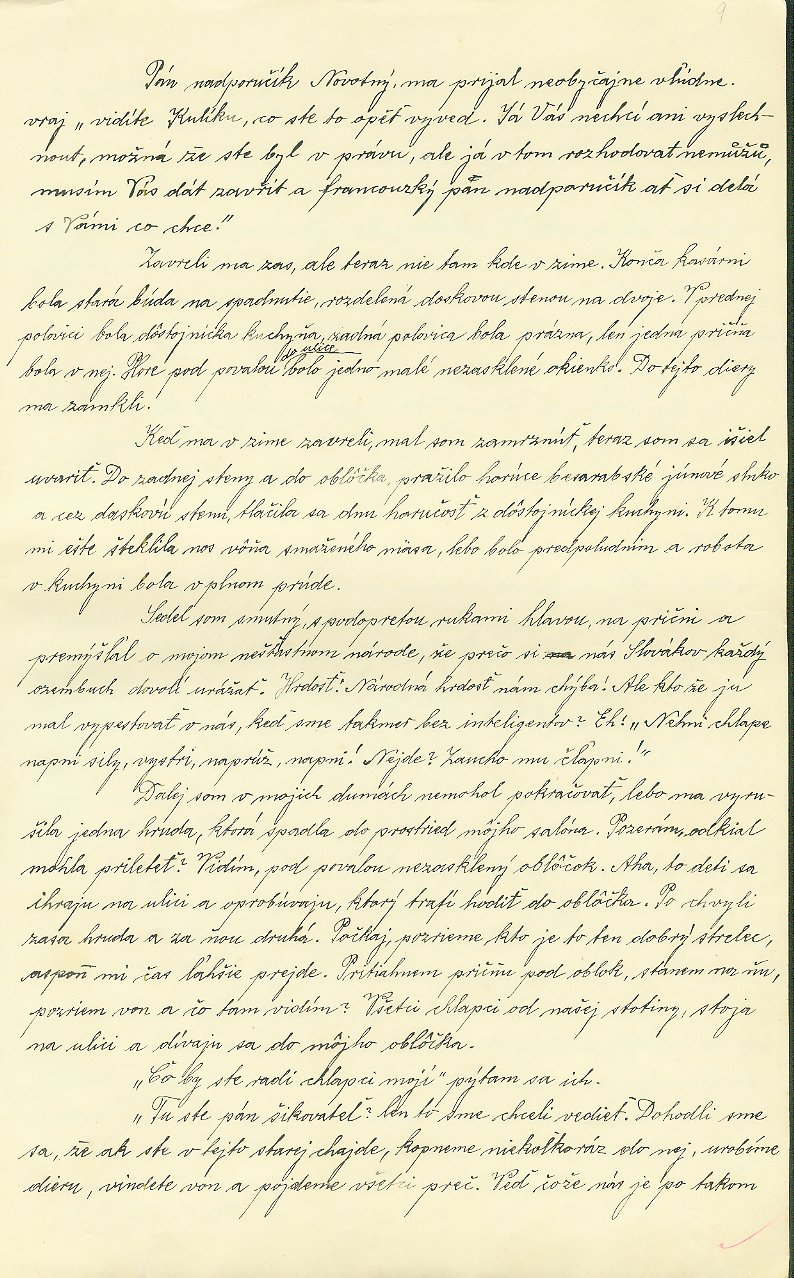 9
Pán nadporučík Novotný, ma prijal neobyčajne vľúdne.
vraj „vidíte Kulíku, co ste to opět vyved. Já Vás nechcí ani vyslech-
nout, možná že ste byl v právu, ale já v tom rozhodovat nemůžů,
musím Vás dát zavřít a francouzký pán nadporučík ať si delá
s Vámi co chce!"
Zavreli ma zas, ale teraz nie tam kde v zime. Konča kasární
bola stará búda na spadnutie, rozdelená doskovou stenou na dvoje. V prednej
polovici bola dôstojnícka kuchyňa, zadná polovica bola prázna, len jedna pričňa
bola v nej. Hore pod povalou do ulice bolo jedno malé nezasklené okienko. Do tejto diery
ma zamkli.
Keď ma v zime zavreli, mal som zamrznúť, teraz som sa išiel
uvariť. Do zadnej steny a do oblôčka, pražilo horúce besarabské júnové slnko
a cez daskovú stenu, tlačila sa dnu horučosť z dôstojníckej kuchyni. K tomu
mi ešte šteklila nos vôňa smaženého mäsa, lebo bolo predpoludním a robota
v kuchyni bola v plnom prúde.
Sedel som smutný, s podopretou rukami hlavou, na prični a
premýšľal o mojom nešťastnom národe, že prečo si nás Slovákov každý
ozembuch dovolí urážať. Hrdosť! Národná hrdosť nám chýba! Ale kto že ju
mal vypestovať v nás, keď sme takmer bez inteligentov? Eh! „Nehni chlape
napni sily, vystri, napruž, napni! Nejde? Zaucho mu čľapni!"
Ďalej som v mojich dumách nemohol pokračovať, lebo ma vyru-
šila jedna hruda, ktorá spadla do prostried môjho salóna. Pozerám, odkiaľ
mohla prileteť? Vidím, pod povalou nezasklený oblôčok. Aha, to deti sa
ihraju na ulici a oprobúvaju, ktorý trafí hodiť do oblôčka. Po chvyli
zasa hruda a za ňou druhá. Počkaj, pozrieme kto je to ten dobrý strelec,
aspoň mi čas ľahšie prejde. Pritiahnem pričňu pod oblok, stanem na ňu,
pozriem von a čo tam vidím? Všetci chlapci od našej stotiny, stoja
na ulici a dívaju sa do môjho oblôčka.
„Čo by ste radi chlapci mojí" pýtam sa ich.
„Tu ste pán šikovateľ? len to sme chceli vedieť. Dohodli sme
sa, že ak ste v tejto starej chajde, kopneme niekoľkoráz do nej, urobíme
dieru, vindete von a pôjdeme všetci preč. Veď čože nás je po takom